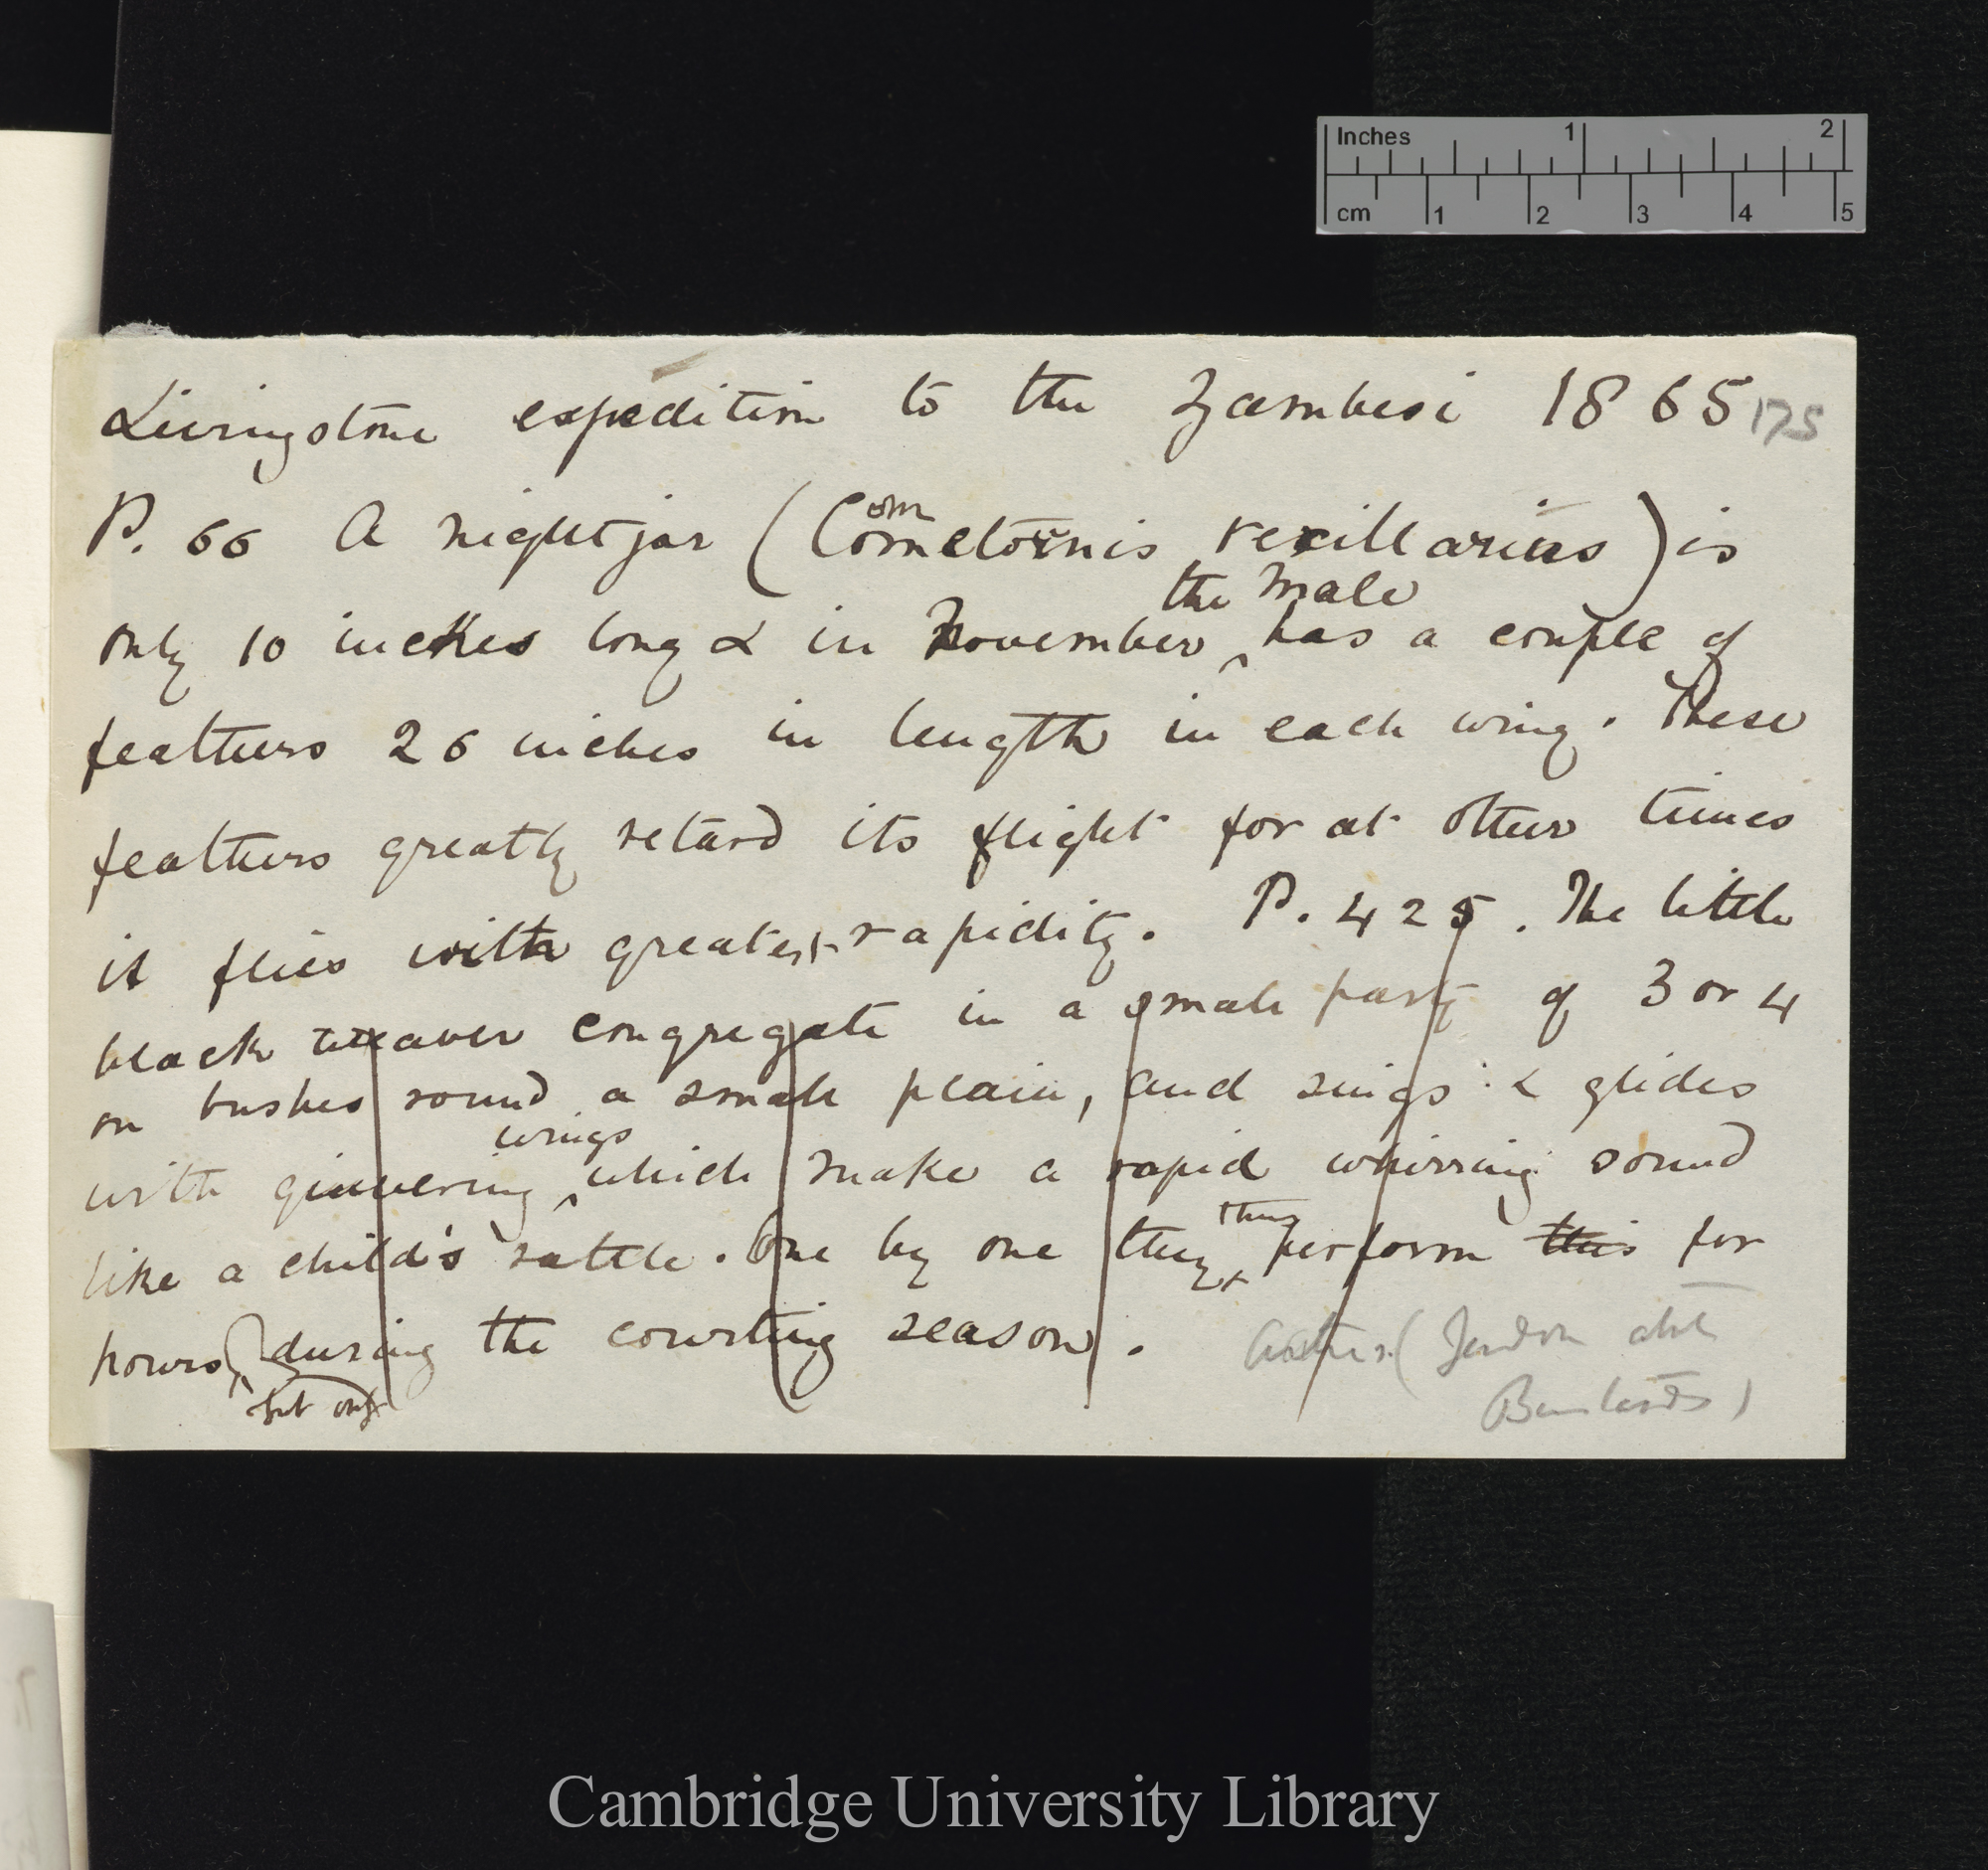 Inches 1 2
cm 1 2 3 4 5
Livingstone expedition to the Zambesi 1865 175
P. 66 A nightjar (Cometornis vexillarius) is
om
the male
only 10 inches long & in November has a couple of
feathers 26 inches in length in each wing. These
feathers greatly retard its flight for at other times
it flies with greatest rapidity. P. 425. The little
black weaver congregate in a small party of 3 or 4
on bushes round a small plain, and sings & glides
wings
with quivering which make a rapid whirring sound
thus
like a child's rattle. One by one they perform this for
hours during the courting season.
but only
Cambridge University Library